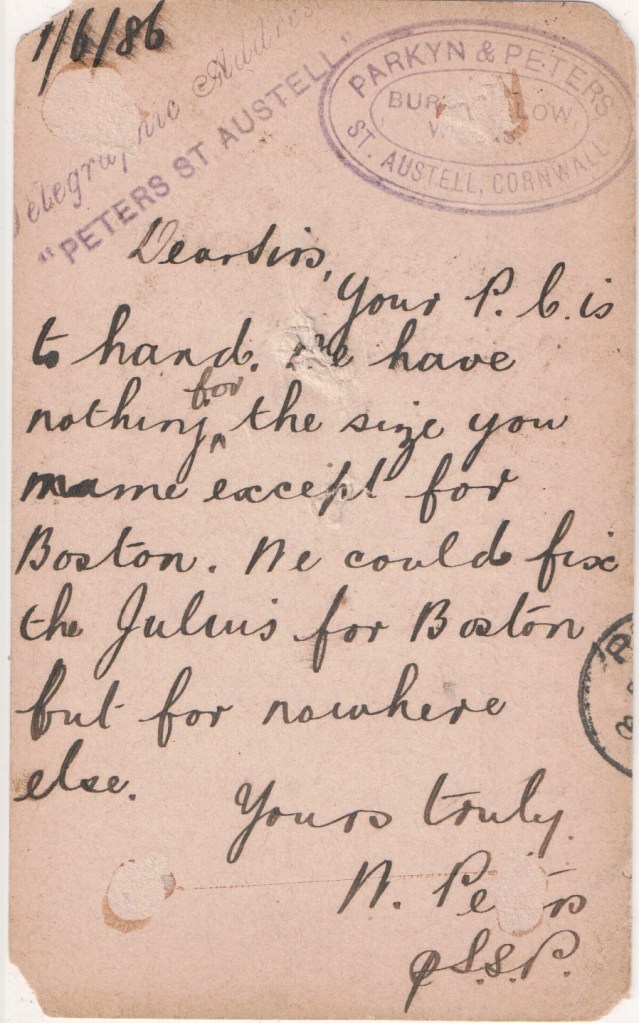 1/6/86
Telegraphic Address
"PETERS ST. AUSTELL"
PARKYN & PETERS
ST. AUSTELL, CORNWALL
Dear Sirs,
Your P. C. is
to hand. We have
nothing for the size you
name except for
Boston. We could fix
the Julius for Boston
but for nowhere
else.
Yours truly.
W.
p S.S.P.